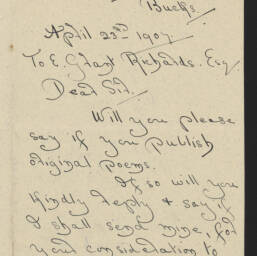 Bucks.
April 23rd 1907.
To E. Grant Richards. Esq.
Dear Sir.
Will you please
say if you publish
original poems.
If so will you
kindly reply & say if
I shall send mine, for
your consideration to